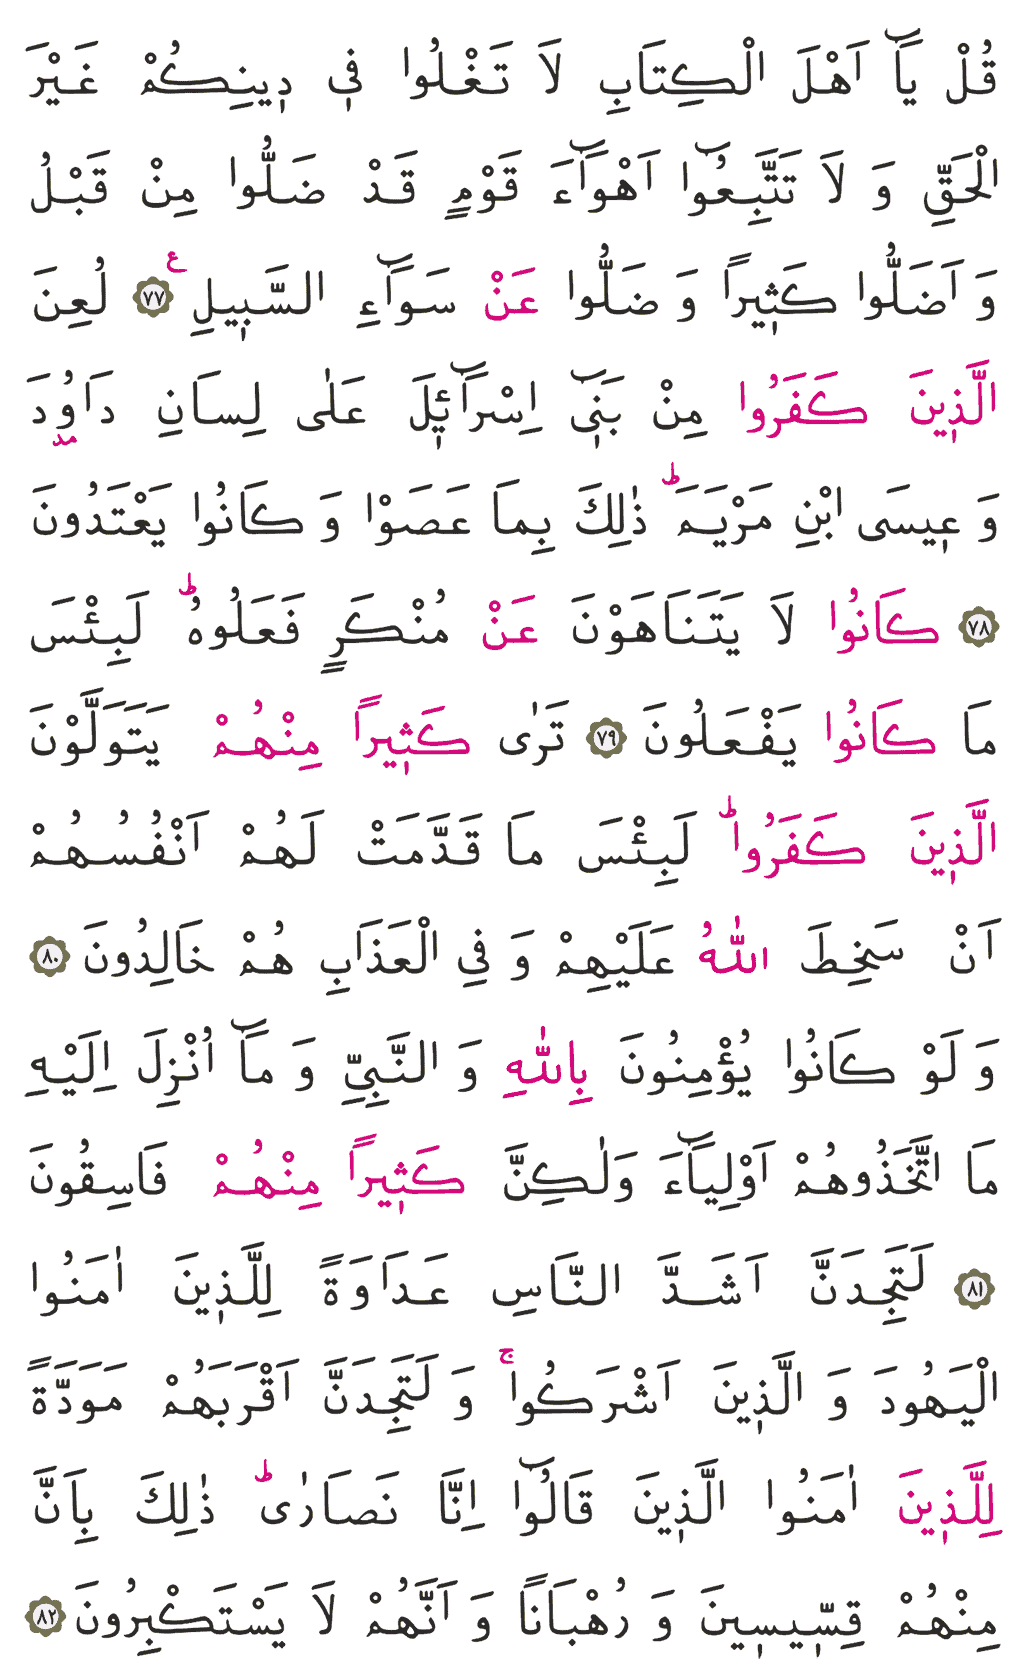 قُلْ يَٓا اَهْلَ الْكِتَابِ لَا تَغْلُوا فٖي دٖينِكُمْ غَيْرَ
الْحَقِّ وَ لَا تَتَّبِعُٓوا اَهْوَٓاءَ قَوْمٍ قَدْ ضَلُّوا مِنْ قَبْلُ
وَ اَضَلُّوا كَثٖيرًا وَ ضَلُّوا عَنْ سَوَٓاءِ السَّبٖيلِ ع ٧٧ لُعِنَ
الَّذٖينَ كَفَرُوا مِنْ بَنٖٓي اِسْرَٓائٖلَ عَلٰى لِسَانِ دَاوُدَ مد
وَ عٖيسَى ابْنِ مَرْيَمَ ط ذٰلِكَ بِمَا عَصَوْا وَ كَانُوا يَعْتَدُونَ
٧٨ كَانُوا لَا يَتَنَاهَوْنَ عَنْ مُنْكَرٍ فَعَلُوهُ ط لَبِئْسَ
مَا كَانُوا يَفْعَلُونَ ٧٩ تَرٰى كَثٖيرًا مِنْهُمْ يَتَوَلَّوْنَ
الَّذٖينَ كَفَرُوا ط لَبِئْسَ مَا قَدَّمَتْ لَهُمْ اَنْفُسُهُمْ
اَنْ سَخِطَ اللّٰهُ عَلَيْهِمْ وَ فِي الْعَذَابِ هُمْ خَالِدُونَ ٨٠
وَ لَوْ كَانُوا يُؤْمِنُونَ بِاللّٰهِ وَ النَّبِيِّ وَ مَٓا اُنْزِلَ اِلَيْهِ
مَا اتَّخَذُوهُمْ اَوْلِيَٓاءَ وَلٰكِنَّ كَثٖيرًا مِنْهُمْ فَاسِقُونَ
٨١ لَتَجِدَنَّ اَشَدَّ النَّاسِ عَدَاوَةً لِلَّذٖينَ اٰمَنُوا
الْيَهُودَ وَ الَّذٖينَ اَشْرَكُوا ج وَ لَتَجِدَنَّ اَقْرَبَهُمْ مَوَدَّةً
لِلَّذٖينَ اٰمَنُوا الَّذٖينَ قَالُٓوا اِنَّا نَصَارٰى ط ذٰلِكَ بِاَنَّ
مِنْهُمْ قِسّٖيسٖينَ وَ رُهْبَانًا وَ اَنَّهُمْ لَا يَسْتَكْبِرُونَ ٨٢